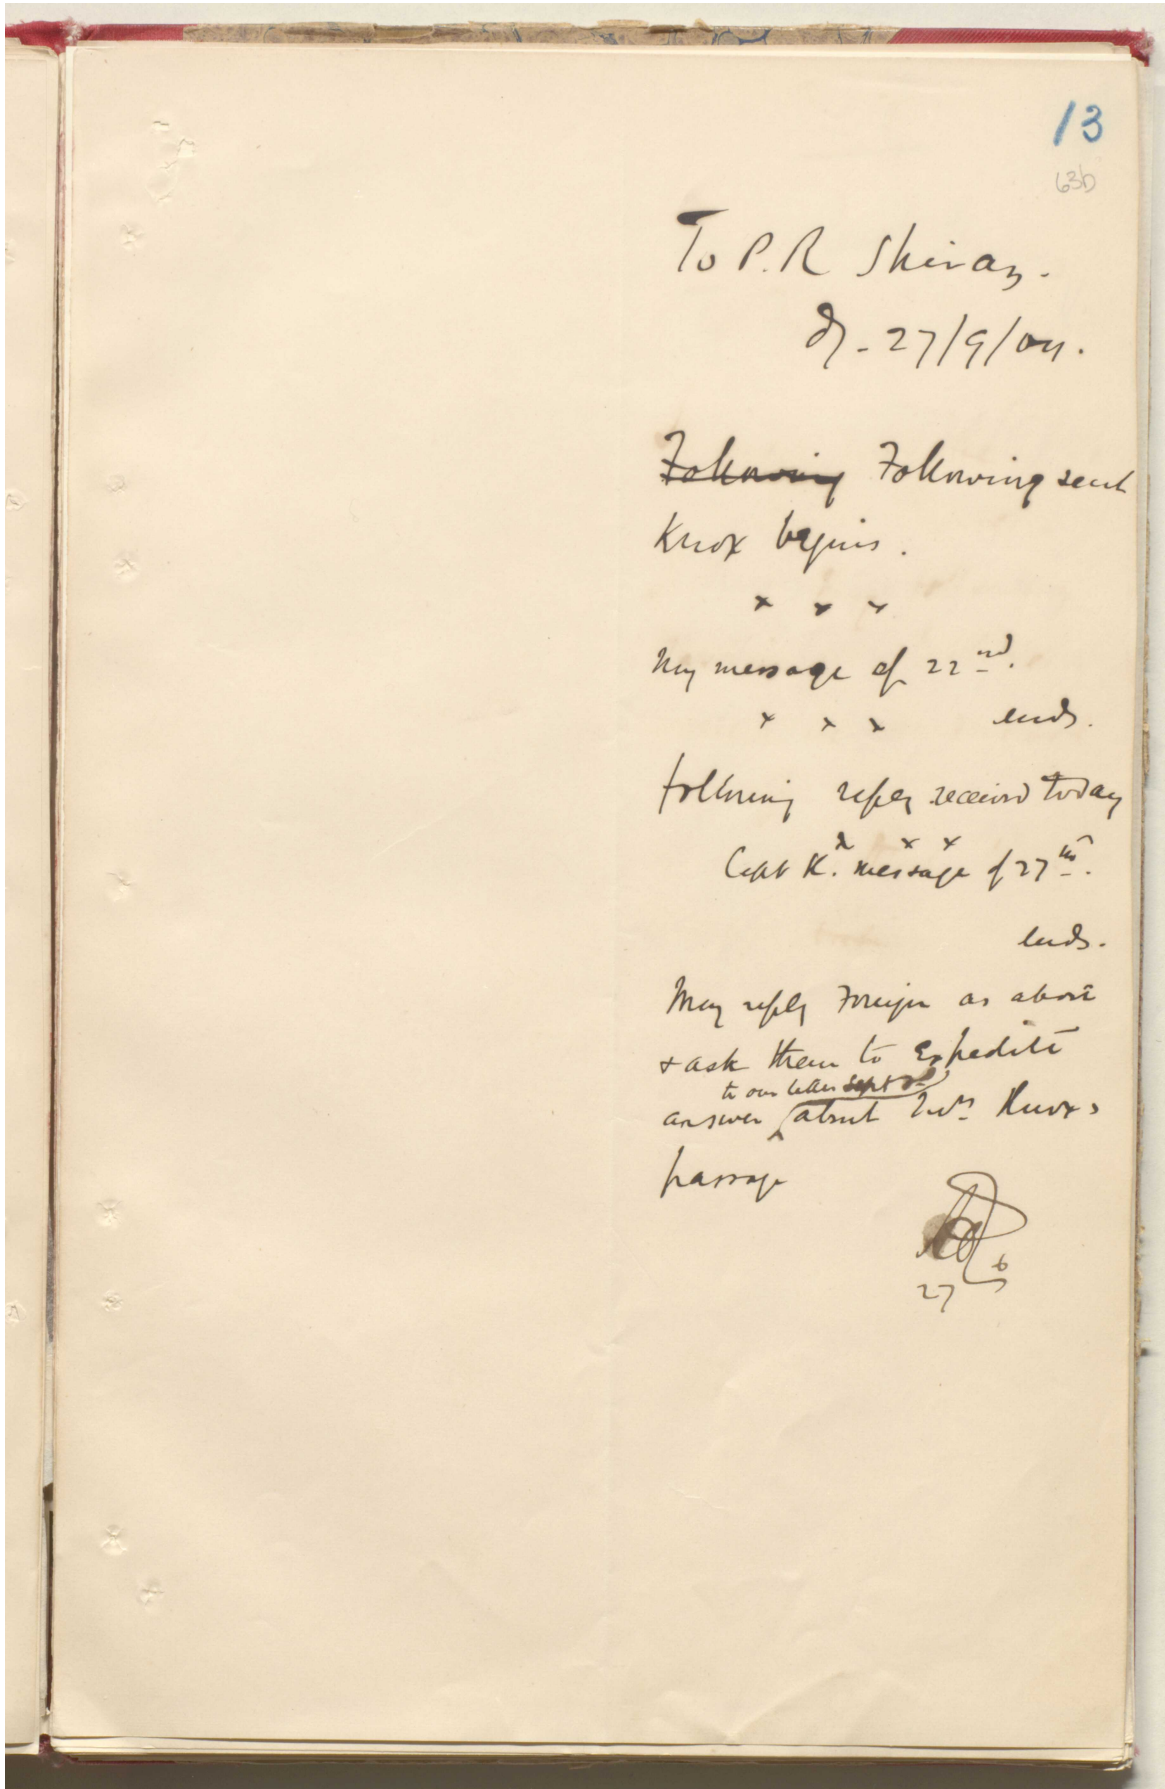 13
63b
To P.R Shiraz.
D/- 27/9/04.
Following Following sent
Knox begins.
x x x
My message of 22nd.
x x x ends.
following reply received today
x x x
Capt K. message of 27th.
ends.
May reply Foreign as above
& ask them to Expedite
to our letter Sept
answer about Mrs. Knox's
passage
27